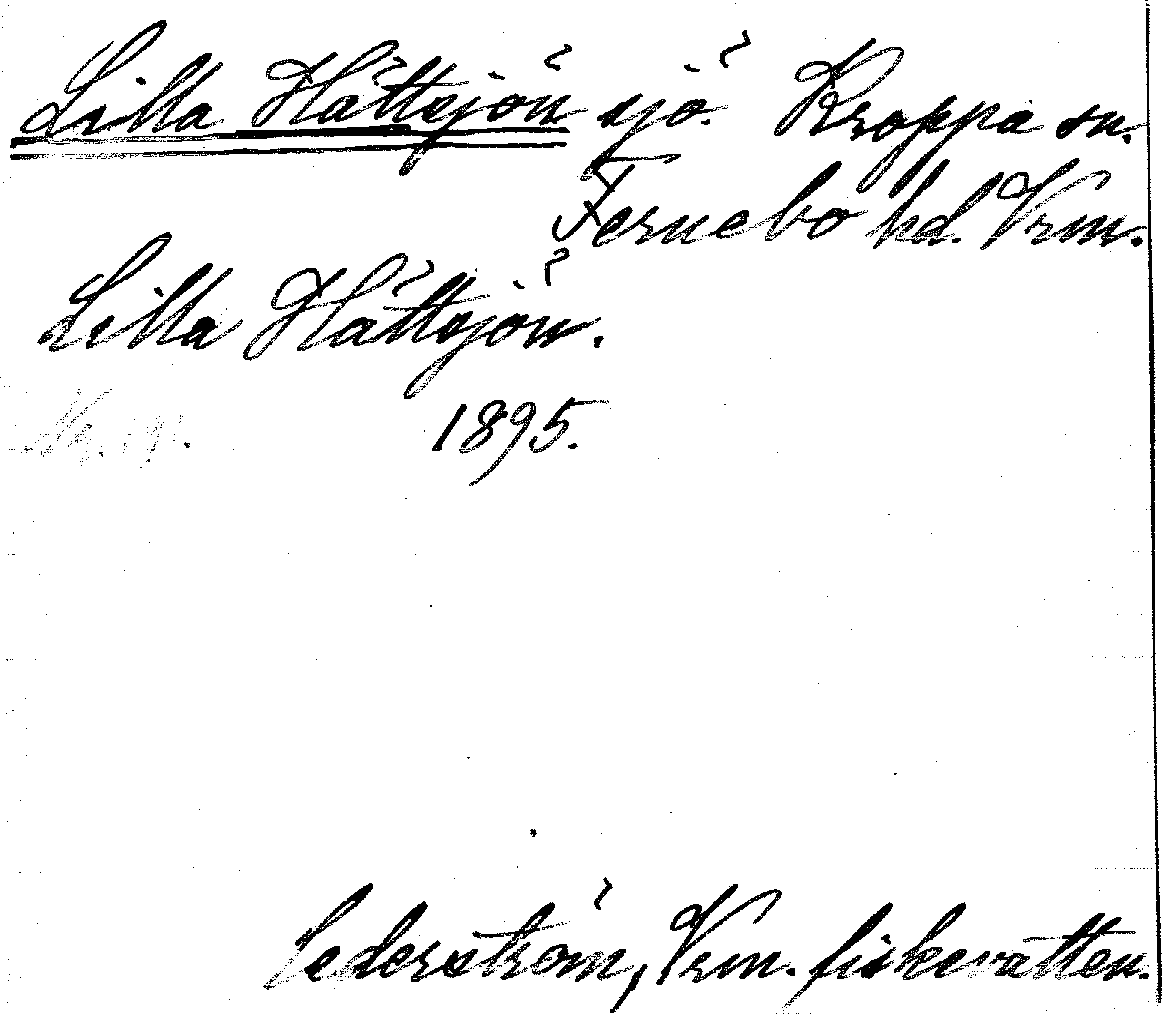 Lilla Hättsjön sjö. Kroppa sn.
Fernebo hd. Vrm.
Lilla Hättsjön.
1895.
Cederström, Vrm. fiskevatten.